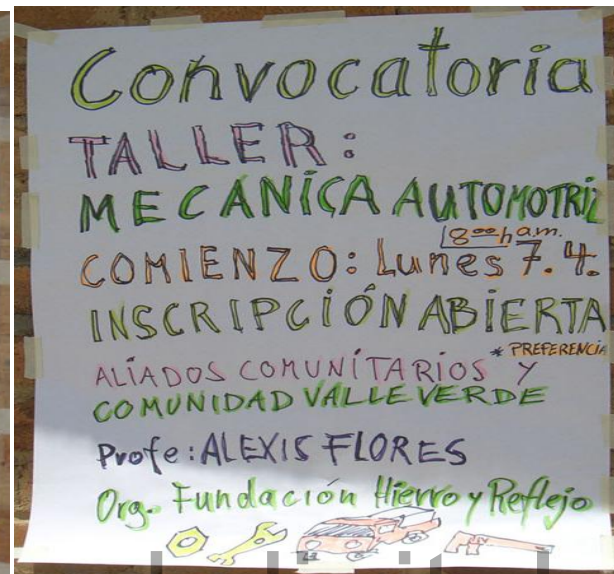 Convocatoria
TALLER:
MECÁNICA AUTOMOTRIZ
8ººh a.m.
COMIENZO: Lunes 7.4.
INSCRIPCIÓN ABIERTA
* PREFERENCIA
ALIADOS COMUNITARIOS Y
COMUNIDAD VALLE VERDE
Profe: ALEXIS FLORES
Org. Fundación Hierro y Reflejo